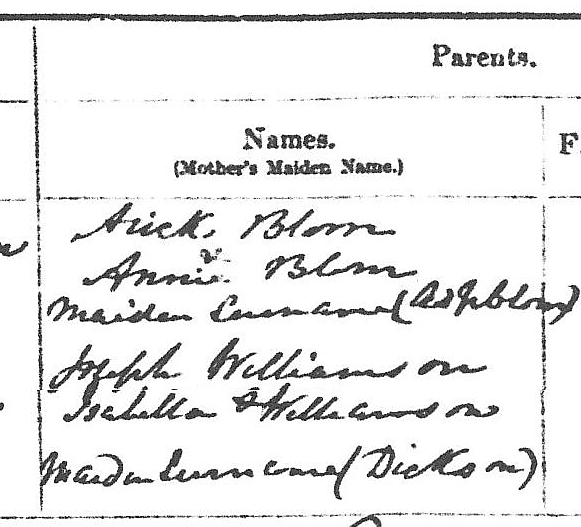 Parents.
Names.
F
(Mother's Maiden Name.)
Blom
Annie Blom
Maiden Surname (Asplblom)
Joseph Williamson
Isabella Williamson
Maiden Surname (Dickson)